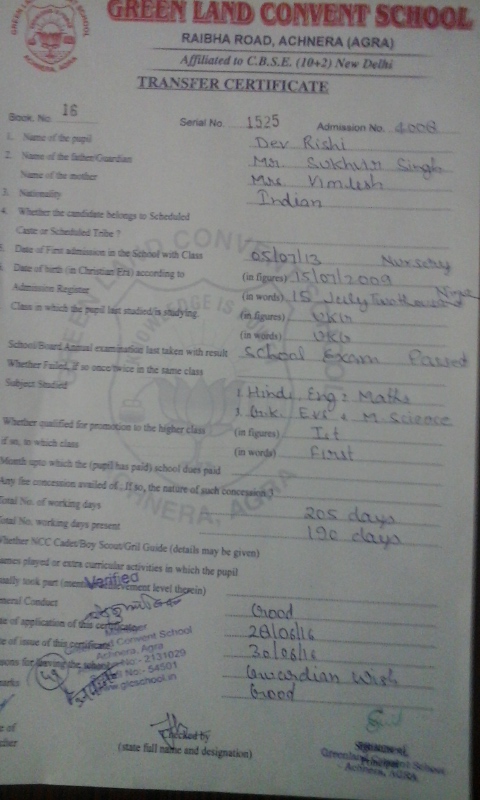 GREEN LAND CONVENT SCHOOL
RAIBHA ROAD, ACHNERA (AGRA)
Affiliated to C.B.S.E. (10+2) New Delhi
TRANSFER CERTIFICATE
Book. No 16 Serial No. 1525 Admission No. 4008
1. Name of the pupil Dev Rishi
2. Name of the father/Guardian Mr. Sukhvir Singh
Name of the mother Mrs. Vimlesh
3. Nationality Indian
4. Whether the candidate belongs to Scheduled
Caste or Scheduled Tribe ?
Date of First admission in the School with Class 05/07/13 Nursery
Date of birth (in Christian Era) according to (in figures) 15/07/2009
Admission Register (in words) 15 July Two thousand Nine
Class in which the pupil last studied/is studying. (in figures) UKG
(in words) UKG
School/Board Annual examination last taken with result School Exam Passed
Whether Failed, if so once/twice in the same class
Subject Studied 1. Hindi, Eng 2 Maths
3. G.K. EVS 4 M. Science
Whether qualified for promotion to the higher class (in figures) Ist
if so, to which class (in words) First
Month upto which the (pupil has paid) school dues paid
Any fee concession availed of . If so, the nature of such concession
Total No. of working days 205 days
Total No. working days present 190 days
Whether NCC Cadet/Boy Scout/Gril Guide (details may be given)
games played or extra curricular activities in which the pupil
usually took part (mention achievement level therein)
Verified
General Conduct Good
Date of application of this certificate 28/06/16
Date of issue of this certificate 30/06/16
Reasons for leaving the school Guardian Wish
Remarks Good
Convent School
Achnera, Agra
No:- 2131029
No.- 54501
www.glcschool.in
Checked by
(state full name and designation)
Greenland Convent School
Achnera, AGRA